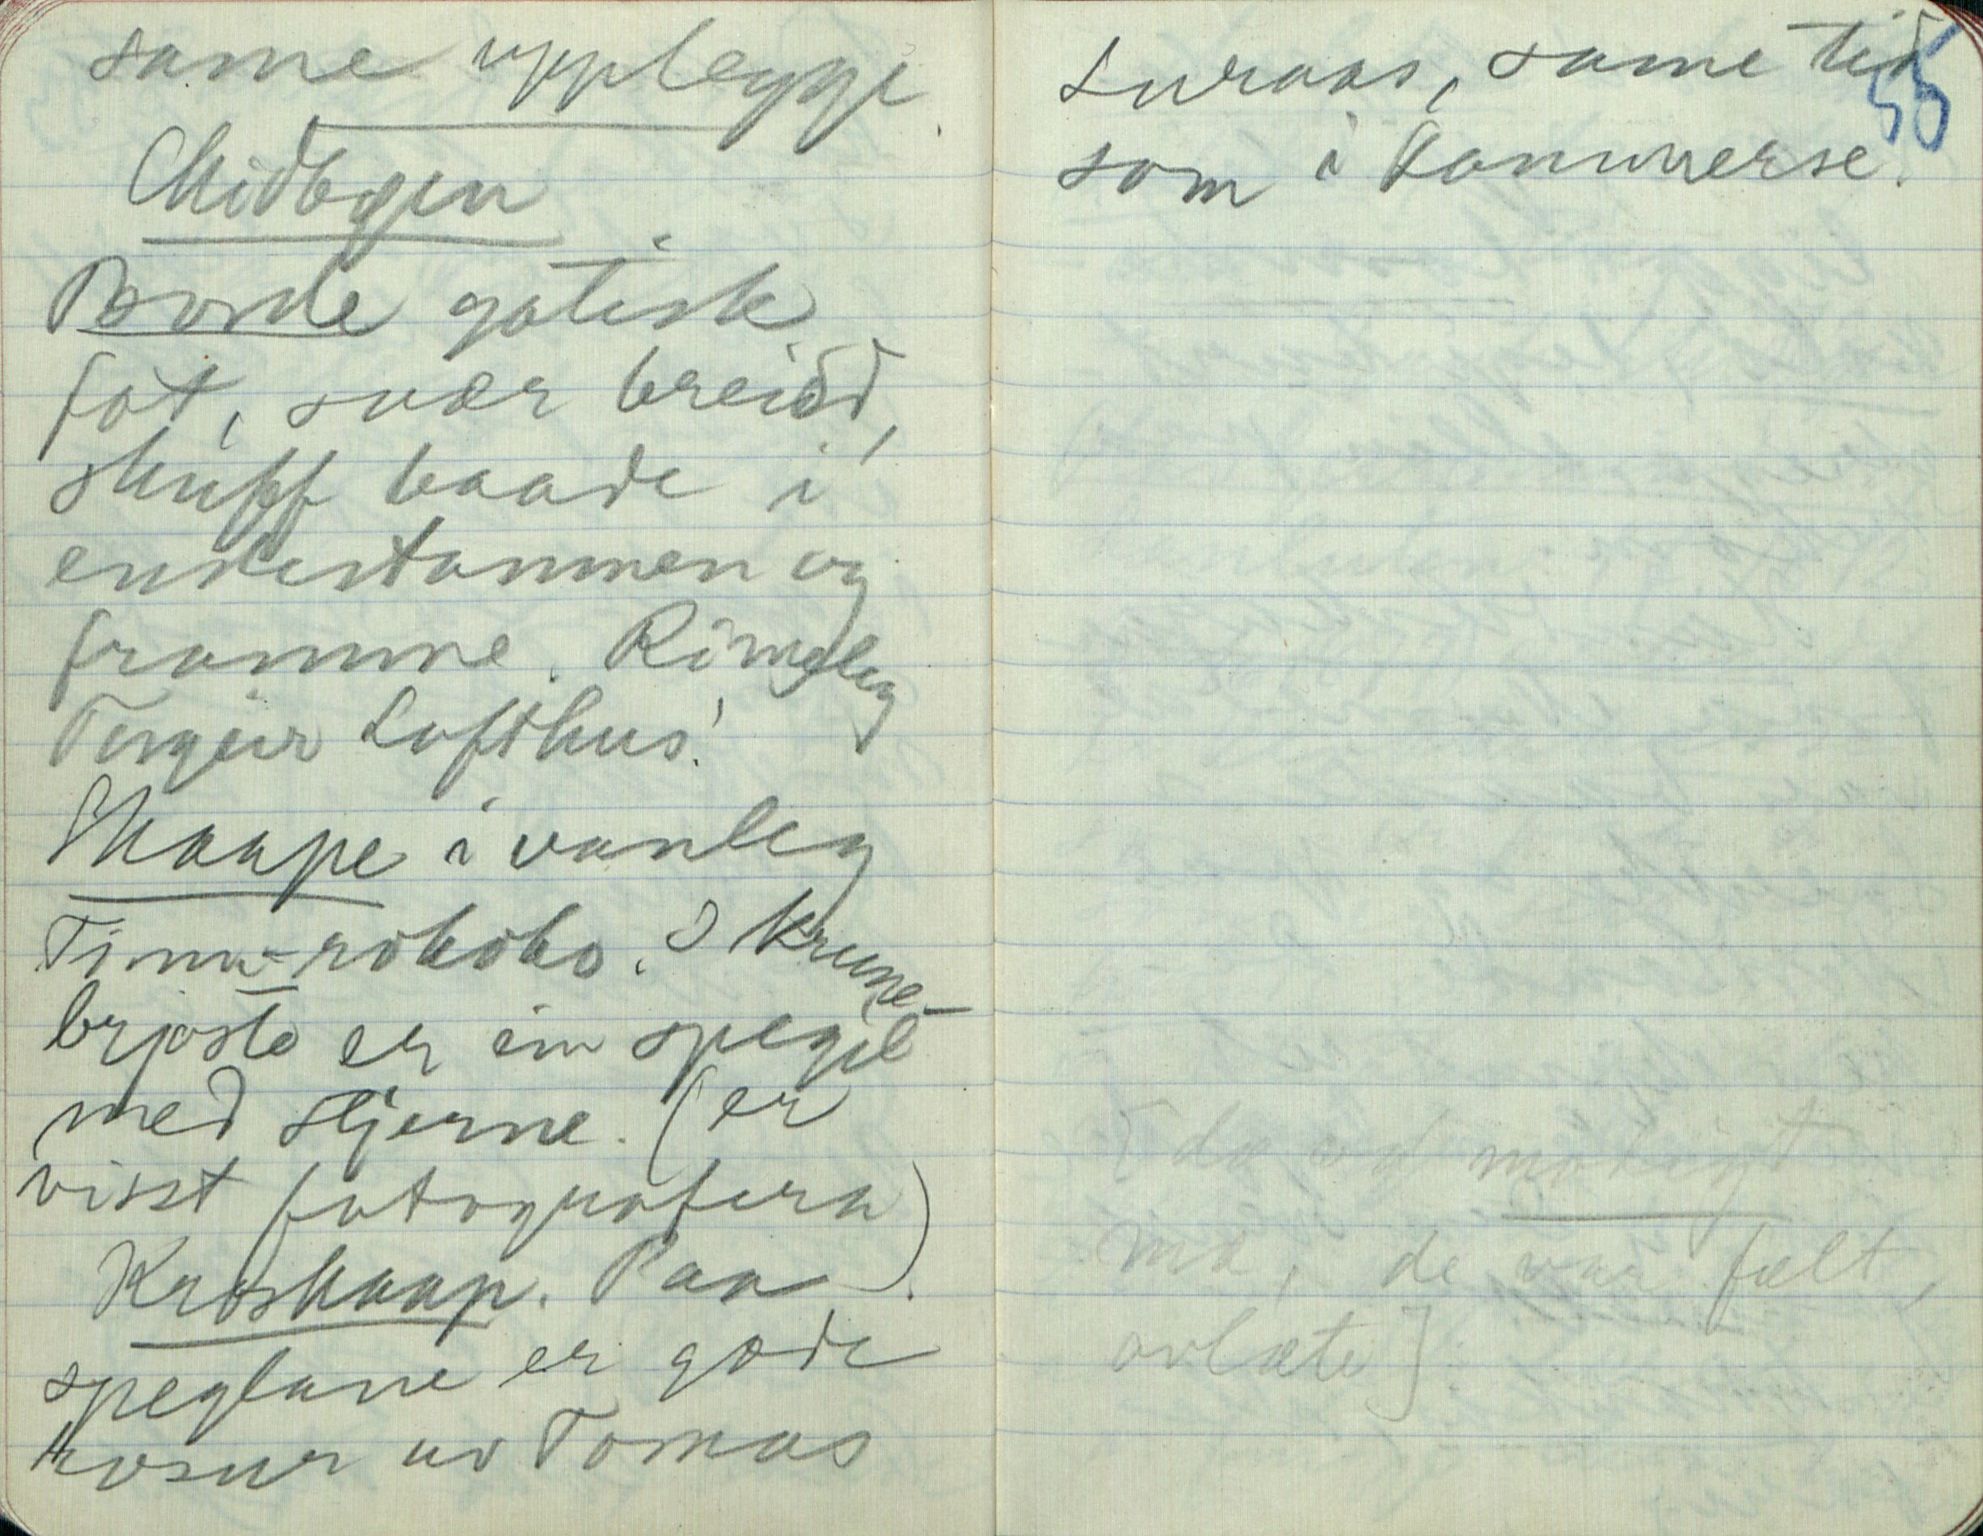 same upplegge.
Midbøen
Borde gotisk
fot, svær breidd,
skuff baade i
endestammen og
framme. Rimeleg
Torgeir Lofthus!
Skaape i vanleg
Tinn-rokoko. I krune-
brjoste er ein spegil
med stjerne. (er
visst fotografera)
Kroskaap. Paa
speglane er gode
rosur av Tomas
Luraas, same tid
som i kammerse.
55
[da æ d mødigt
ma, de var fælt,
avlæte]